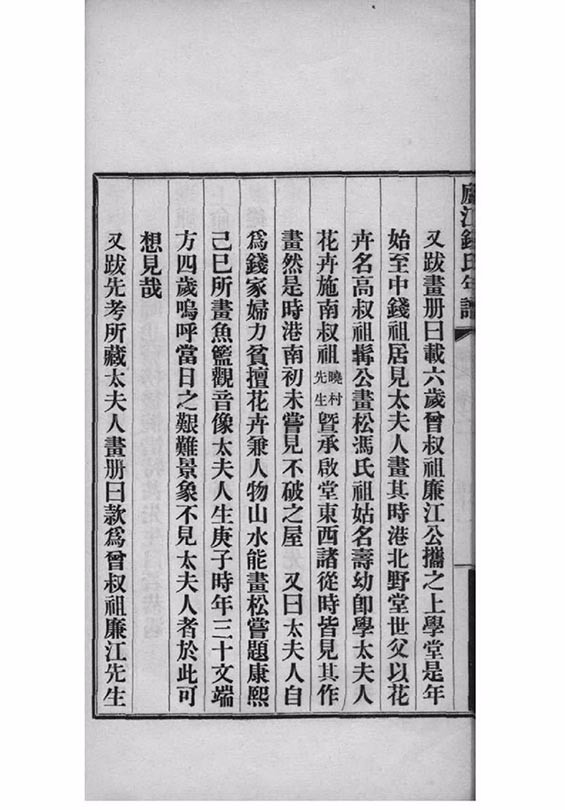 廬江錢氏年譜
又跋畫册曰載六歲曾叔祖廉江公攜之上學堂是年
始至中錢祖居見太夫人畫其時港北野堂世父以花
卉名高叔祖髥公畫松馮氏祖姑名壽幼卽學太夫人
花卉施南叔祖曉村先生曁承啟堂東西諸從時皆見其作
畫然是時港南初未嘗見不破之屋 又曰太夫人自
爲錢家婦力貧擅花卉兼人物山水能畫松嘗題康熙
己巳所畫魚籃觀音像太夫人生庚子時年三十文端
方四歲嗚呼當日之艱難景象不見太夫人者於此可
想見哉
又跋先考所藏太夫人畫册曰款爲曾叔祖廉江先生